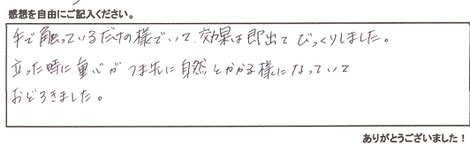 感想を自由にご記入ください。
手で触っているだけの様でいて、効果は即出て びっくりしました。
立った時に重心がつま先に自然とかかる様になっていて
おどろきました。
ありがとうございました!